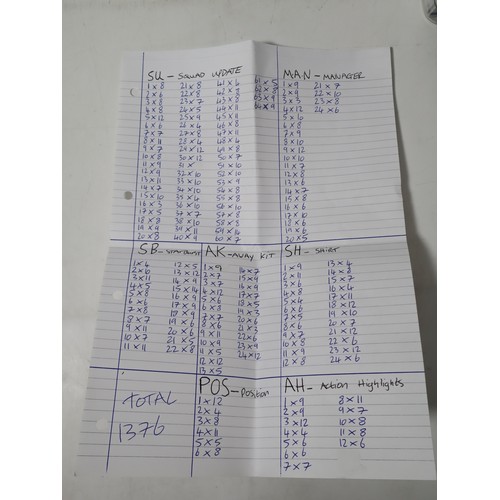 SU - SQUAD UPDATE
1 x 8
2 x 6
3 x 8
4 x 8
5 x 12
6 x 6
7 x 7
8 x 11
9 x 7
10 x 8
11 x 9
12 x 9
13 x 11
14 x 7
15 x 10
16 x 3
17 x 5
18 x 8
19 x 4
20 x 8
21 x 8
22 x 8
23 x 7
24 x 5
25 x 9
26 x 4
27 x 8
28 x 4
29 x 12
30 x 12
31 x
32 x 10
33 x 10
34 x 9
35 x 9
36 x 10
37 x 7
38 x 10
39 x 11
40 x 9
41 x 6
42 x 8
43 x 8
44 x 9
45 x 8
46 x 8
47 x 11
48 x 6
49 x 8
50 x 7
51 x 6
52 x 9
53 x 9
54 x 8
55 x 8
56 x 9
57 x 8
58 x 5
59 x 14
60 x 7
61 x 5
63 x 9
64 x 9
MAN - MANAGER
1 x 9
2 x 9
3 x 3
4 x 10
5 x 6
6 x 8
7 x 9
8 x 9
9 x 12
10 x 10
11 x 7
12 x 8
13 x 6
14 x 7
15 x 8
16 x 6
17 x 10
18 x 6
19 x 6
20 x 5
21 x 7
22 x 10
23 x 8
24 x 6
SB - STARDUST
1 x 4
2 x 10
3 x 11
4 x 5
5 x 8
6 x 6
7 x 8
8 x 7
9 x 11
10 x 7
11 x 11
12 x 5
13 x 12
14 x 7
15 x 14
16 x 9
17 x 9
18 x 9
19 x 6
20 x 6
21 x 5
22 x 8
AK - AWAY KIT
1 x 9
2 x 9
3 x 7
4 x 12
5 x 6
6 x 7
7 x 6
8 x 6
9 x 11
10 x 9
11 x 5
12 x 12
13 x 5
14 x 7
15 x 9
16 x 9
17 x 7
18 x 5
19 x 3
20 x 6
21 x 3
22 x 6
23 x 9
24 x 12
SH - SHIRT
1 x 9
2 x 11
3 x 8
4 x 8
5 x 4
6 x 6
7 x 5
8 x 7
9 x 8
10 x 8
11 x 9
12 x 8
13 x 4
14 x 8
15 x 7
16 x 4
17 x 11
18 x 12
19 x 10
20 x 7
21 x 12
22 x 6
23 x 12
24 x 6
TOTAL
1376
POS - Position
1 x 12
2 x 4
3 x 8
4 x 11
5 x 5
6 x 8
AH - Action Highlights
1 x 9
2 x 9
3 x 12
4 x 4
5 x 6
6 x 6
7 x 7
8 x 11
9 x 7
10 x 8
11 x 8
12 x 6